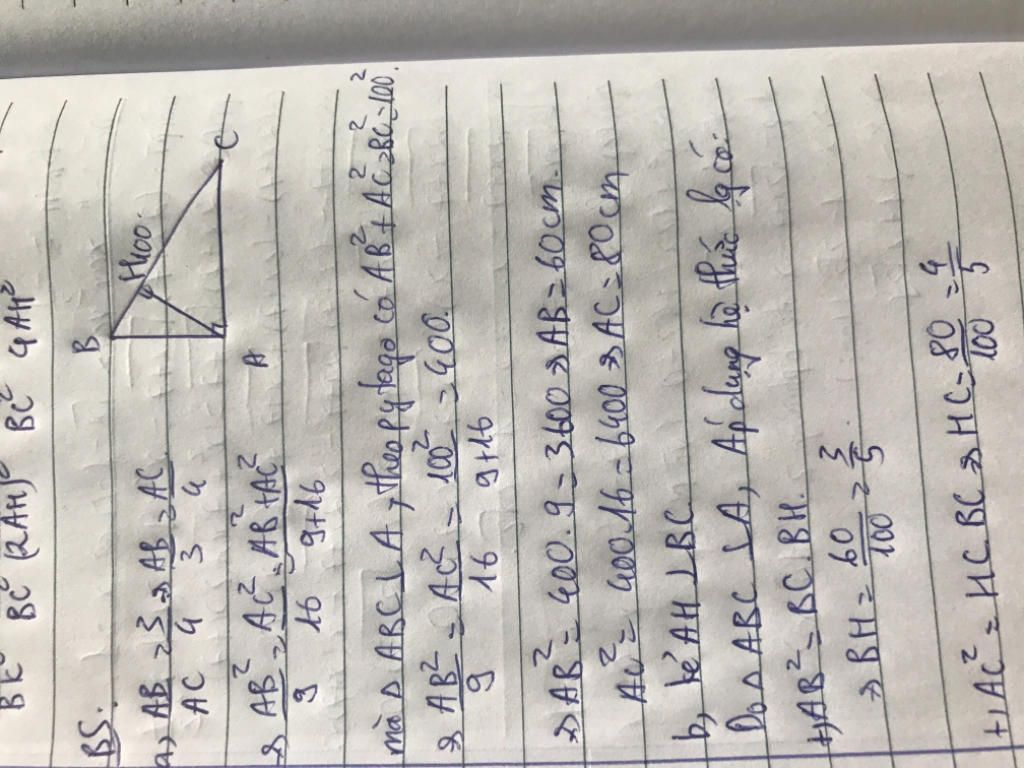 BK² BC² (2AH)² BC² 4AH²
B5.
B
H
100.
A
C
a, AB/AC = 3/4 => AB/3 = AC/4
=> AB²/9 = AC²/16 = AB²+AC²/9+16
mà Δ ABC ⊥ A, theo pytago có AB² + AC² = BC² = 100².
=> AB²/9 = AC²/16 = 100²/9+16 = 400.
=> AB² = 400.9 = 3600 => AB = 60cm.
AC² = 400.16 = 6400 => AC = 80cm
b, kẻ AH ⊥ BC.
Do Δ ABC ⊥ A, Áp dụng hệ thức lg có.
+, AB² = BC BH.
=> BH = 60/100 = 3/5
+, AC² = HC BC => HC = 80/100 = 4/5